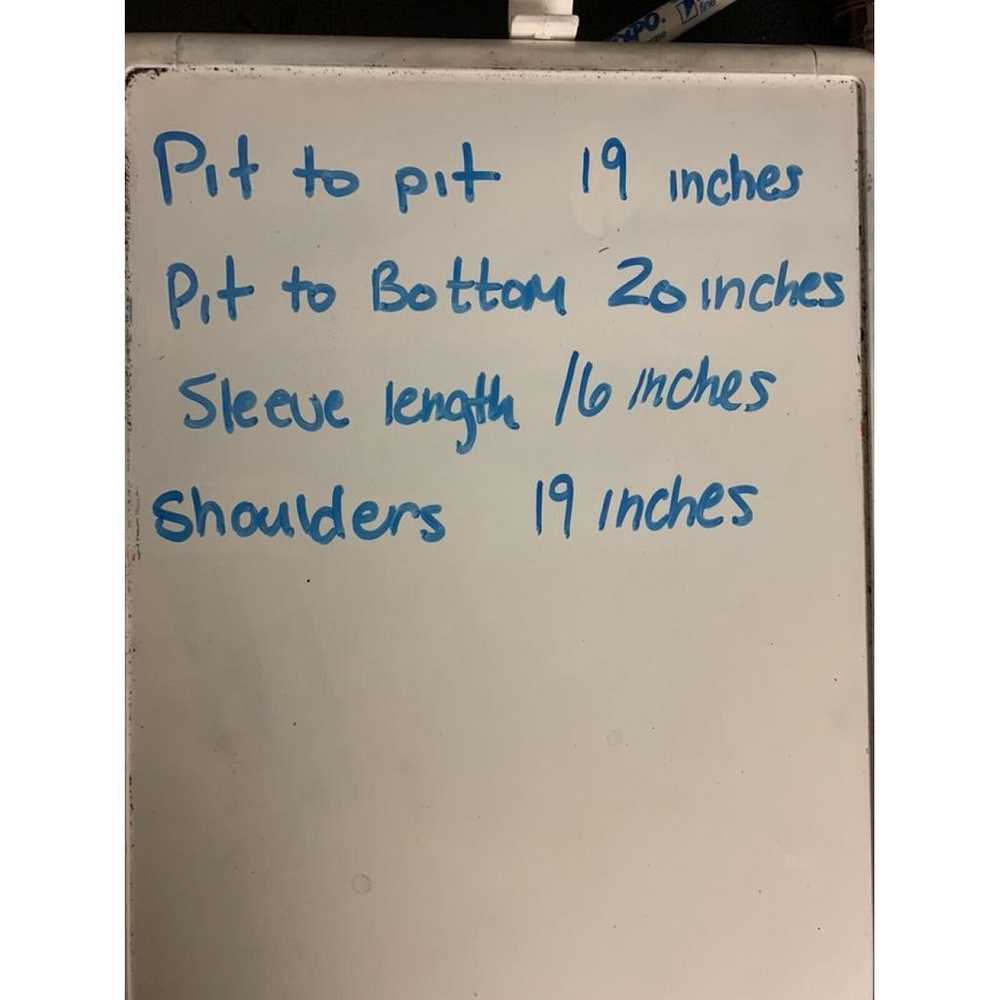 Pit to pit 19 inches
Pit to Bottom 20 inches
Sleeve length 16 inches
Shoulders 19 inches